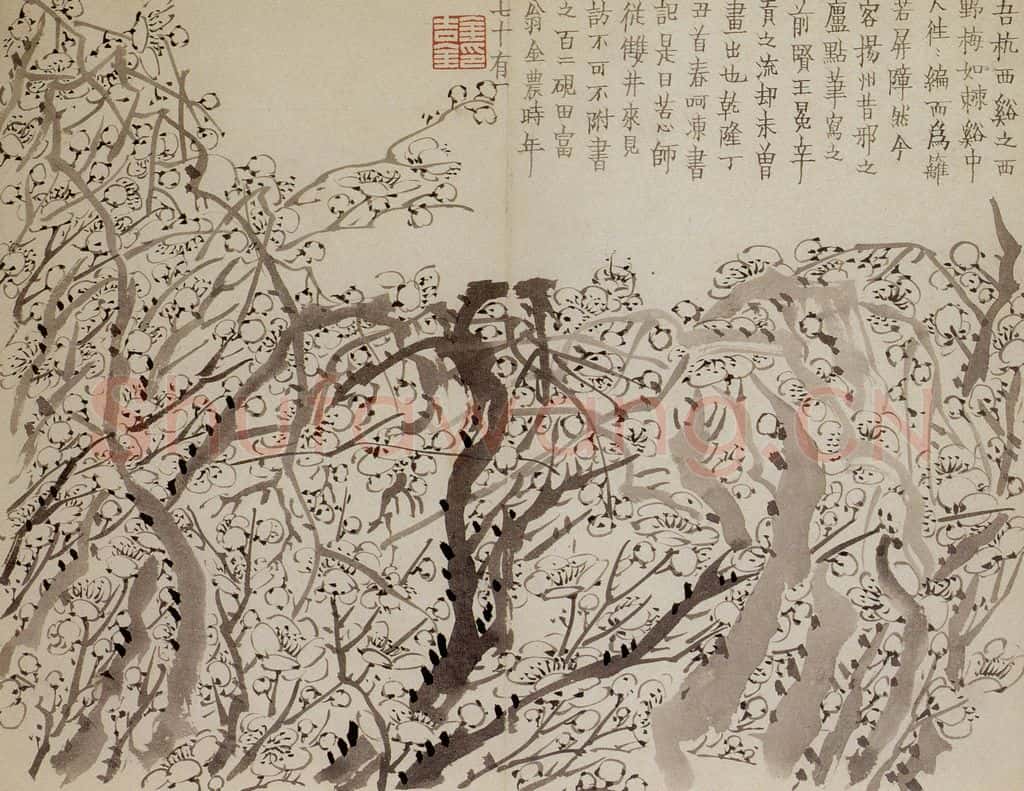 吾杭西谿之西
野梅如棘谿中
人徃〻編而爲籬
若屏障然今
客揚州昔邪之
廬點筆寫之
前賢王冕辛
貢之流却未曾
畫出也乾隆丁
丑首春呵凍書
記是日苦心師
從雙井來見
訪不可不附書
之百二硯田富
翁金農時年
七十有一
Shufawang.CN